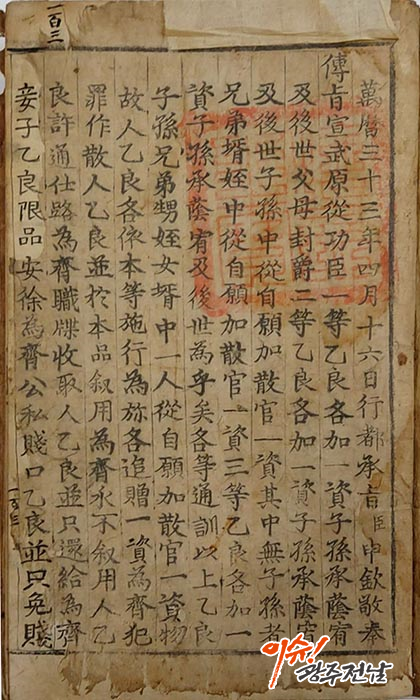 一百三
萬曆三十三年四月十六日行都承旨臣申欽敬奉
傳旨宣武原從功臣一等乙良各加一資子孫承蔭宥
及後世父母封爵二等乙良各加一資子孫承蔭宥
及後世子孫中從自願加散官一資其中無子孫者
兄弟壻姪中從自願加散官一資三等乙良各加一
資子孫承蔭宥及後世為乎矣各等通訓以上乙良
子孫兄弟甥姪女壻中一人從自願加散官一資物
故人乙良各依本等施行為旀各追贈一資為齊犯
罪作散人乙良並於本品叙用為齊永不叙用人乙
良許通仕路為齊職牒收取人乙良並只還給為齊
妾子乙良限品安徐為齊公私賤口乙良並只免賤
이슈!
광주전남